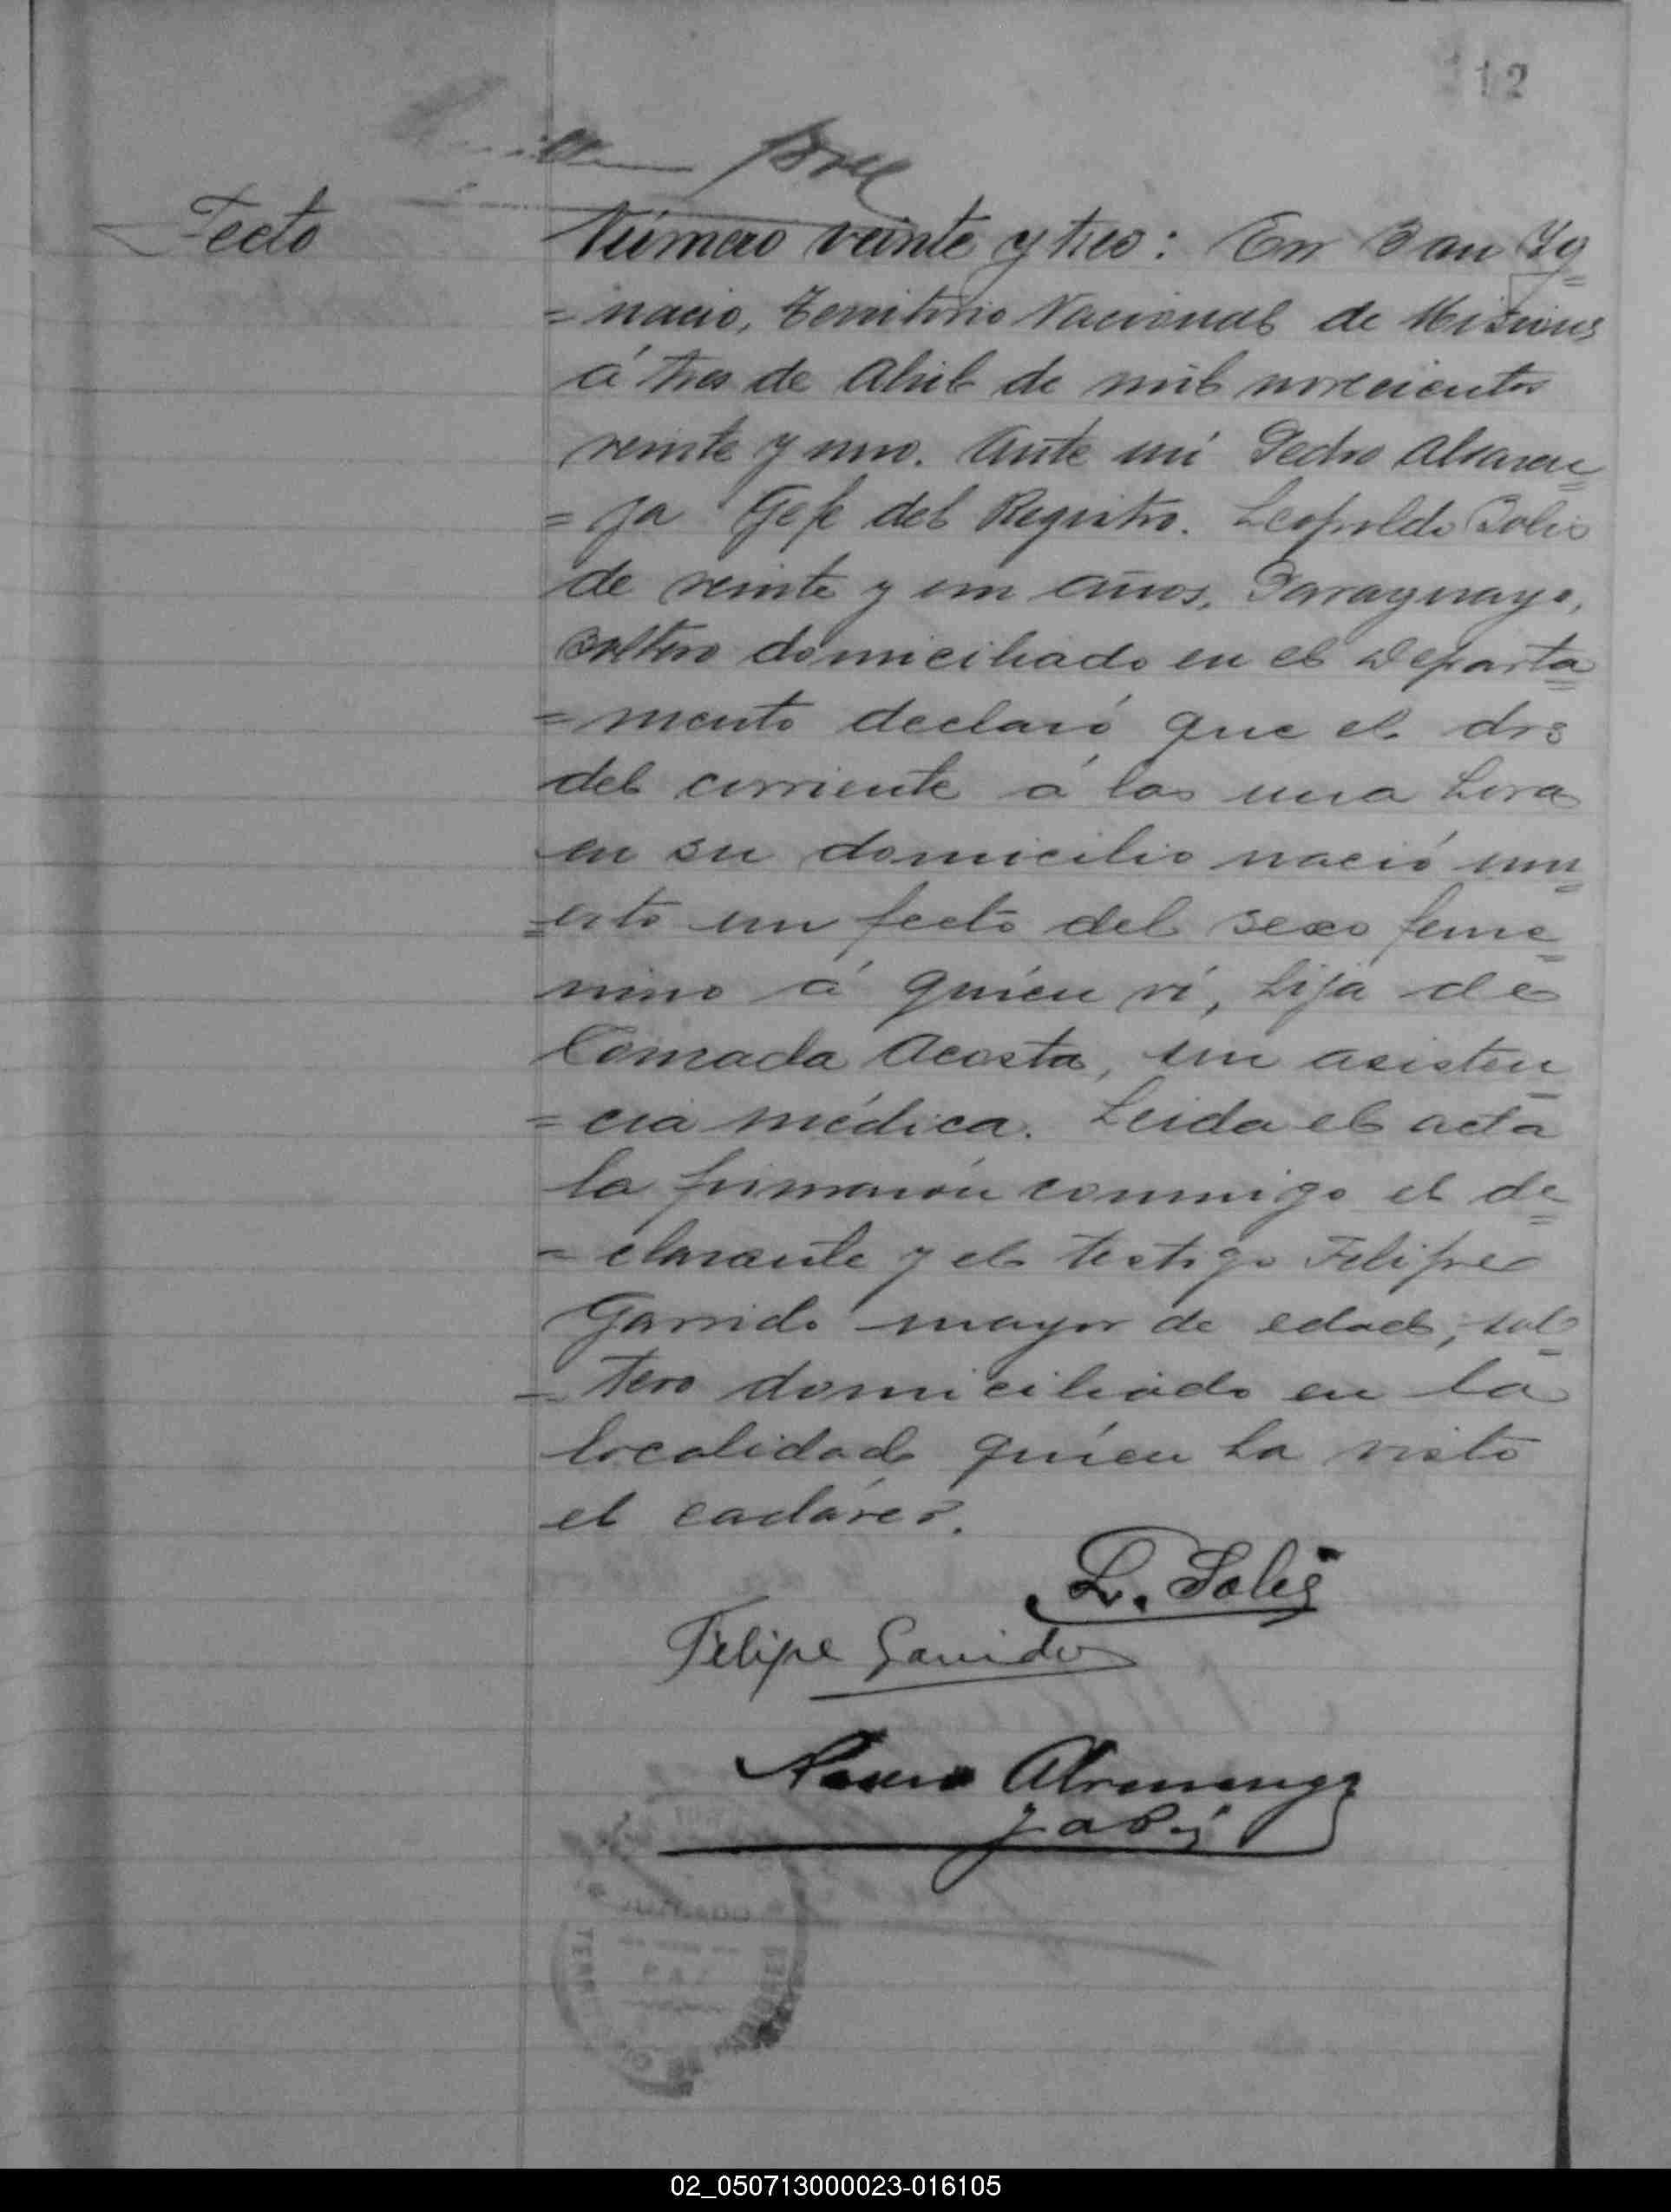 112
Fecto
Número veinte y tres: En San Ig
=nacio, Territorio Nacional de Misiones
á tres de Abril de mil novecientos
veinte y uno. Ante mí Pedro Alvaren
=ga Gefe del Registro. Leopoldo Solis
de veinte y un años, Paraguayo,
soltero domiciliado en el Departa
=mento declaró que el dos
del corriente á las una hora
en su domicilio nació mu
=erto un fecto del sexo feme
nino á quién ví, hija de
Comada Acosta, sin asisten
=cia médica. Leida el acta
la firmarón conmigo el de
=clarante y el testigo Felipe
Garrido mayor de edad, sol
=tero domiciliado en la
localidad quíen ha visto
el cadáver.
L. Solis
Felipe Garrido
Alvarenga
TERR
02_050713000023-016105